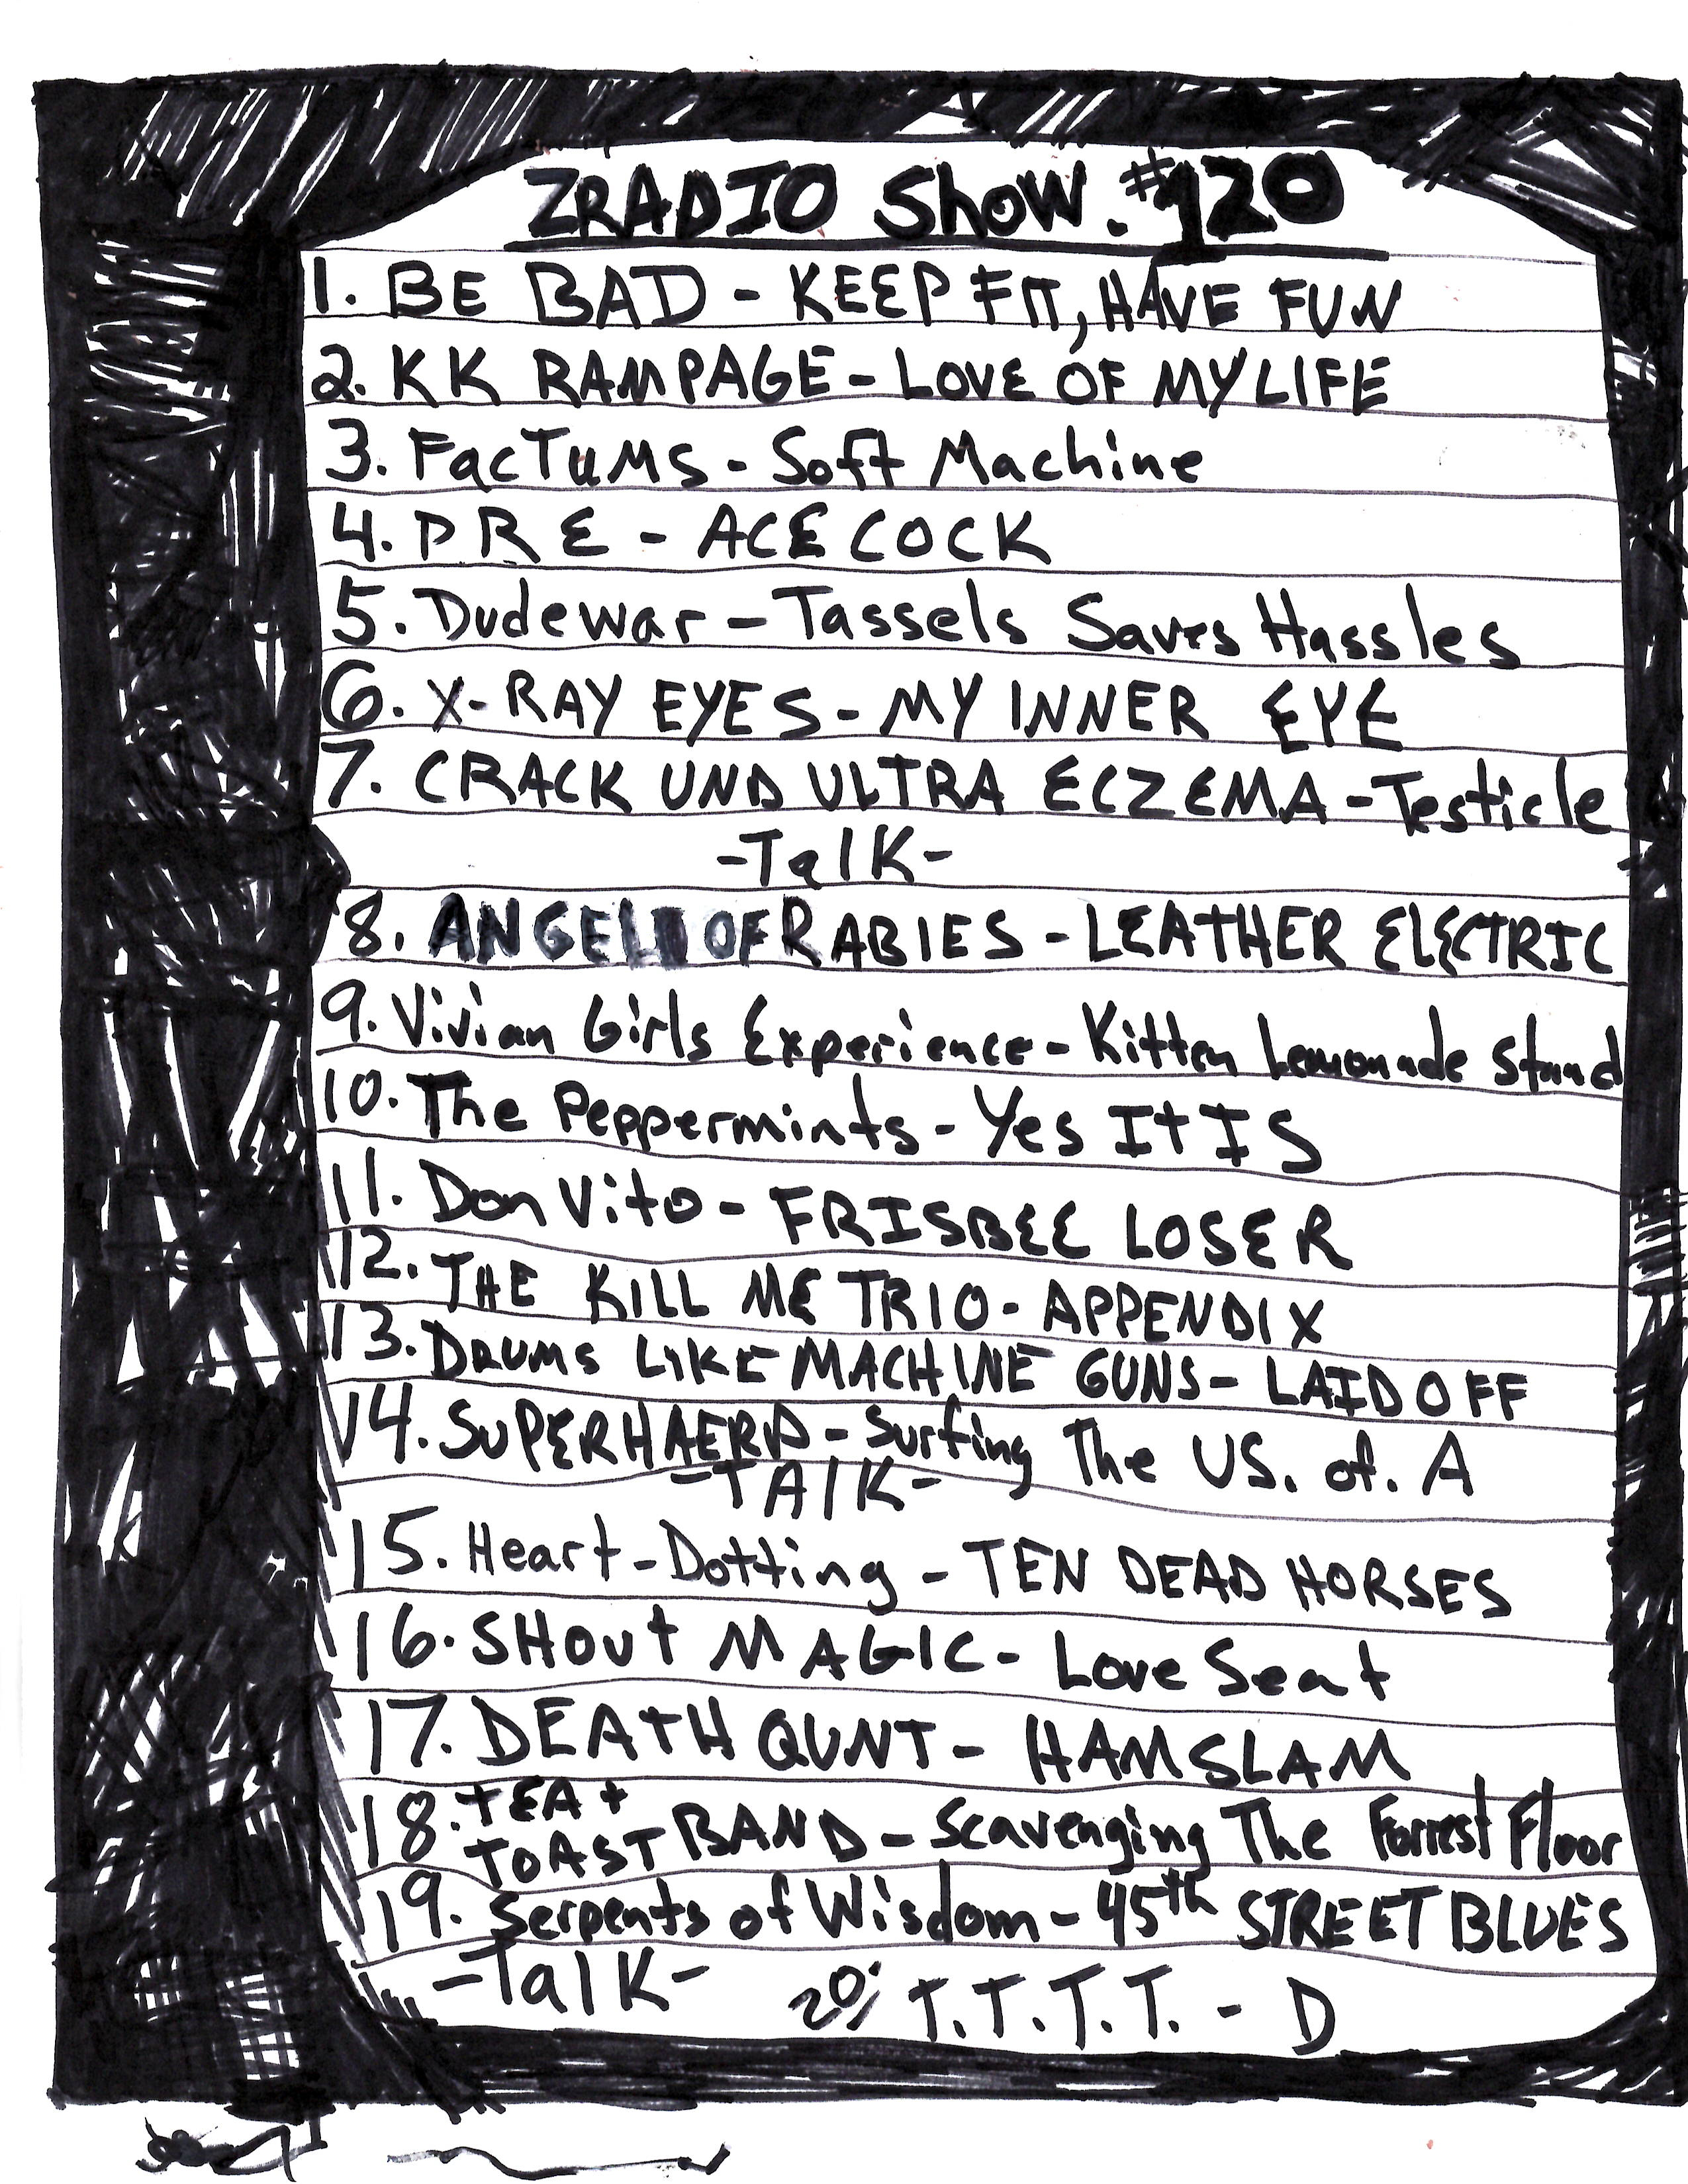 ZRADIO Show. #120
1. BE BAD - KEEP FIT, HAVE FUN
2. KK RAMPAGE - LOVE OF MY LIFE
3. FacTuMS - Soft Machine
4. PRE - ACE COCK
5. Dudewar - Tassels Saves Hassles
6. X-RAY EYES - MY INNER EYE
7. CRACK UND ULTRA ECZEMA - Testicle
-Talk-
8. ANGELS OF RABIES - LEATHER ELECTRIC
9. Vivian Girls Experience - Kitten Lemonade Stand
10. The Peppermints - Yes It IS
11. Don Vito - FRISBEE LOSER
12. THE KILL ME TRIO - APPENDIX
13. DRUMS LIKE MACHINE GUNS - LAID OFF
14. SUPERHAERD - Surfing The US. of. A
-TALK-
15. Heart-Dotting - TEN DEAD HORSES
16. SHOUT MAGIC - Love Seat
17. DEATH QUNT - HAMSLAM
18. TEA + TOAST BAND - Scavenging The Forrest Floor
19. Serpents of Wisdom - 45th STREET BLUES
-Talk- 20. T.T.T.T. - D